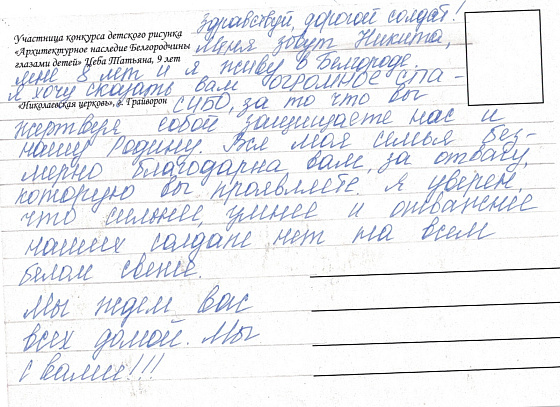 Здравствуй, дорогой солдат!
Участница конкурса детского рисунка
«Архитектурное наследие Белгородчины
глазами детей» Цеба Татьяна, 9 лет
Меня зовут Никита,
мне 8 лет и я живу в Белгороде.
Я хочу сказать вам ОГРОМНОЕ СПА-
«Николаевская церковь», г. Грайворон
СИБО, за то что вы
жертвуя собой защищаете нас и
нашу Родину. Вся моя семья без-
мерно благодарна вам, за отвагу,
которую вы проявляете. Я уверен,
что сильнее, умнее и отважнее
наших солдат нет на всем
белом свете.
Мы ждем вас
всех домой. Мы
с вами!!!